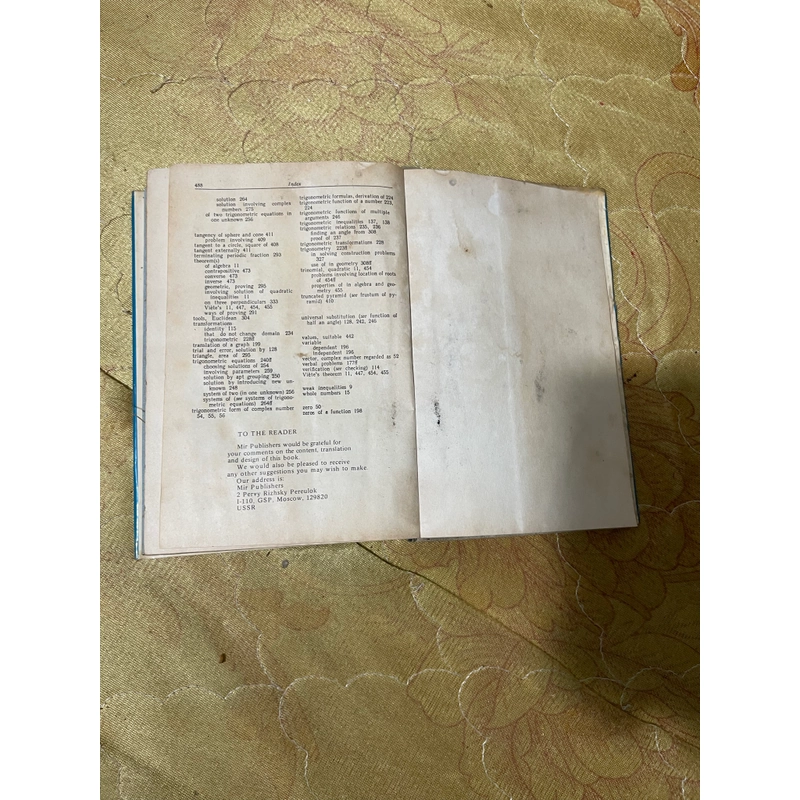 488
Index
solution 264
solution involving complex
numbers 275
of two trigonometric equations in
one unknown 256
tangency of sphere and cone 411
problem involving 409
tangent to a circle, square of 408
tangent externally 411
terminating periodic fraction 293
theorem(s)
of algebra 11
contrapositive 473
converse 473
inverse 473
geometric, proving 295
involving solution of quadratic
inequalities 11
on three perpendiculars 333
Viète's 11, 447, 454, 455
ways of proving 291
tools, Euclidean 304
transformations
identity 113
that do not change domain 234
trigonometric 228ff
translation of a graph 199
trial and error, solution by 128
triangle, area of 295
trigonometric equations 240ff
choosing solutions of 254
involving parameters 259
solution by apt grouping 250
solution by introducing new un-
known 248
system of two (in one unknown) 256
systems of (see systems of trigono-
metric equations) 264ff
trigonometric form of complex number
54, 55, 56
trigonometric formulas, derivation of 224
trigonometric function of a number 223,
224
trigonometric functions of multiple
arguments 246
trigonometric inequalities 137, 138
trigonometric relations 235, 236
finding an angle from 308
proof of 237
trigonometric transformations 228
trigonometry 223ff
in solving construction problems
327
use of in geometry 308ff
trinomial, quadratic 11, 454
problems involving location of roots
of 454ff
properties of in algebra and geo-
metry 455
truncated pyramid (see frustum of py-
ramid) 410
universal substitution (see function of
half an angle) 128, 242, 246
values, suitable 442
variable
dependent 196
independent 196
vector, complex number regarded as 52
verbal problems 177ff
verification (see checking) 114
Viète's theorem 11, 447, 454, 455
weak inequalities 9
whole numbers 15
zero 50
zeros of a function 198
TO THE READER
Mir Publishers would be grateful for
your comments on the content, translation
and design of this book.
We would also be pleased to receive
any other suggestions you may wish to make.
Our address is:
Mir Publishers
2 Pervy Rizhsky Pereulok
I-110, GSP, Moscow, 129820
USSR